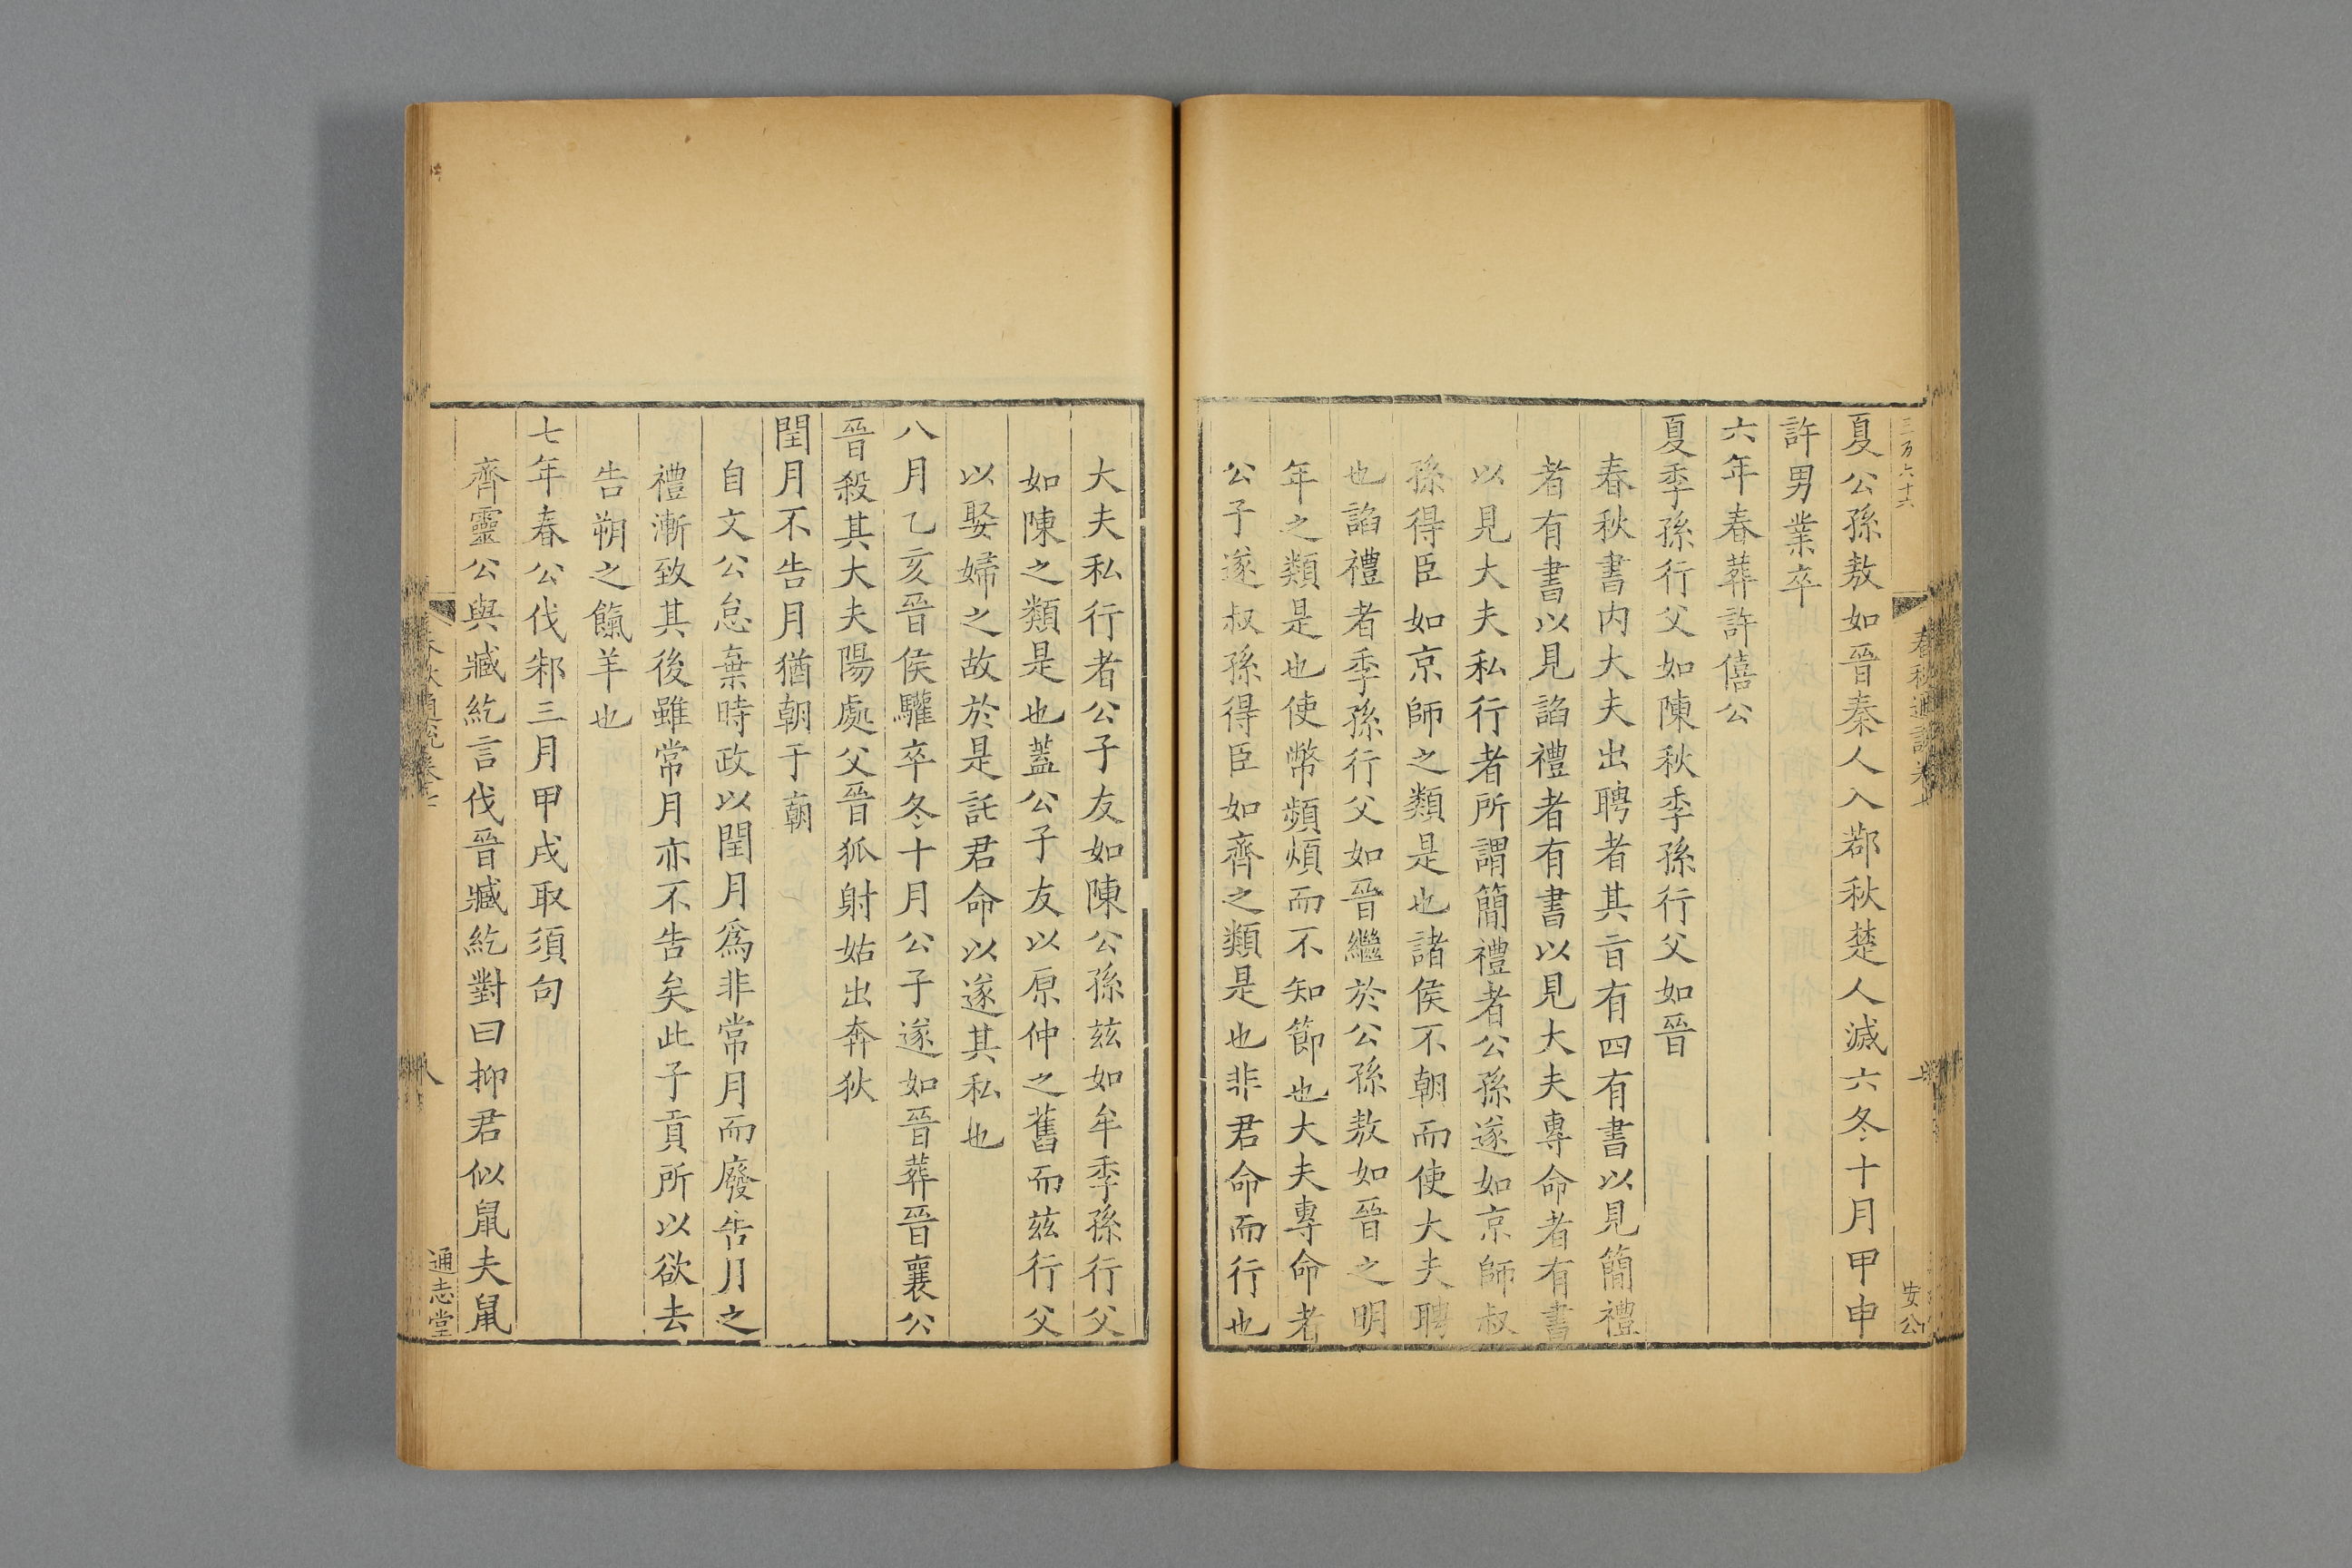 三万六十六
夏公孫敖如晉秦人入鄀秋楚人滅六冬十月甲申
許男業卒
六年春葬許僖公
夏季孫行父如陳秋季孫行父如晉
春秋書内大夫出聘者其㫖有四有書以見簡禮
者有書以見諂禮者有書以見大夫專命者有書
以見大夫私行者所謂簡禮者公孫遂如京師叔
孫得臣如京師之類是也諸侯不朝而使大夫聘
也諂禮者季孫行父如晉繼於公孫敖如晉之明
年之類是也使幣頻煩而不知節也大夫專命者
公子遂叔孫得臣如齊之類是也非君命而行也
大夫私行者公子友如陳公孫兹如牟季孫行父
如陳之類是也蓋公子友以原仲之舊而兹行父
以娶婦之故於是託君命以遂其私也
八月乙亥晉侯驩卒冬十月公子遂如晉葬晉襄公
晉殺其大夫陽處父晉狐射姑出奔狄
閏月不告月猶朝于廟
自文公怠棄時政以閏月爲非常月而廢告月之
禮漸致其後雖常月亦不告矣此子貢所以欲去
告朔之餼羊也
七年春公伐邾三月甲戌取須句
齊靈公與臧紇言伐晉臧紇對曰抑君似鼠夫鼠
八
通志堂